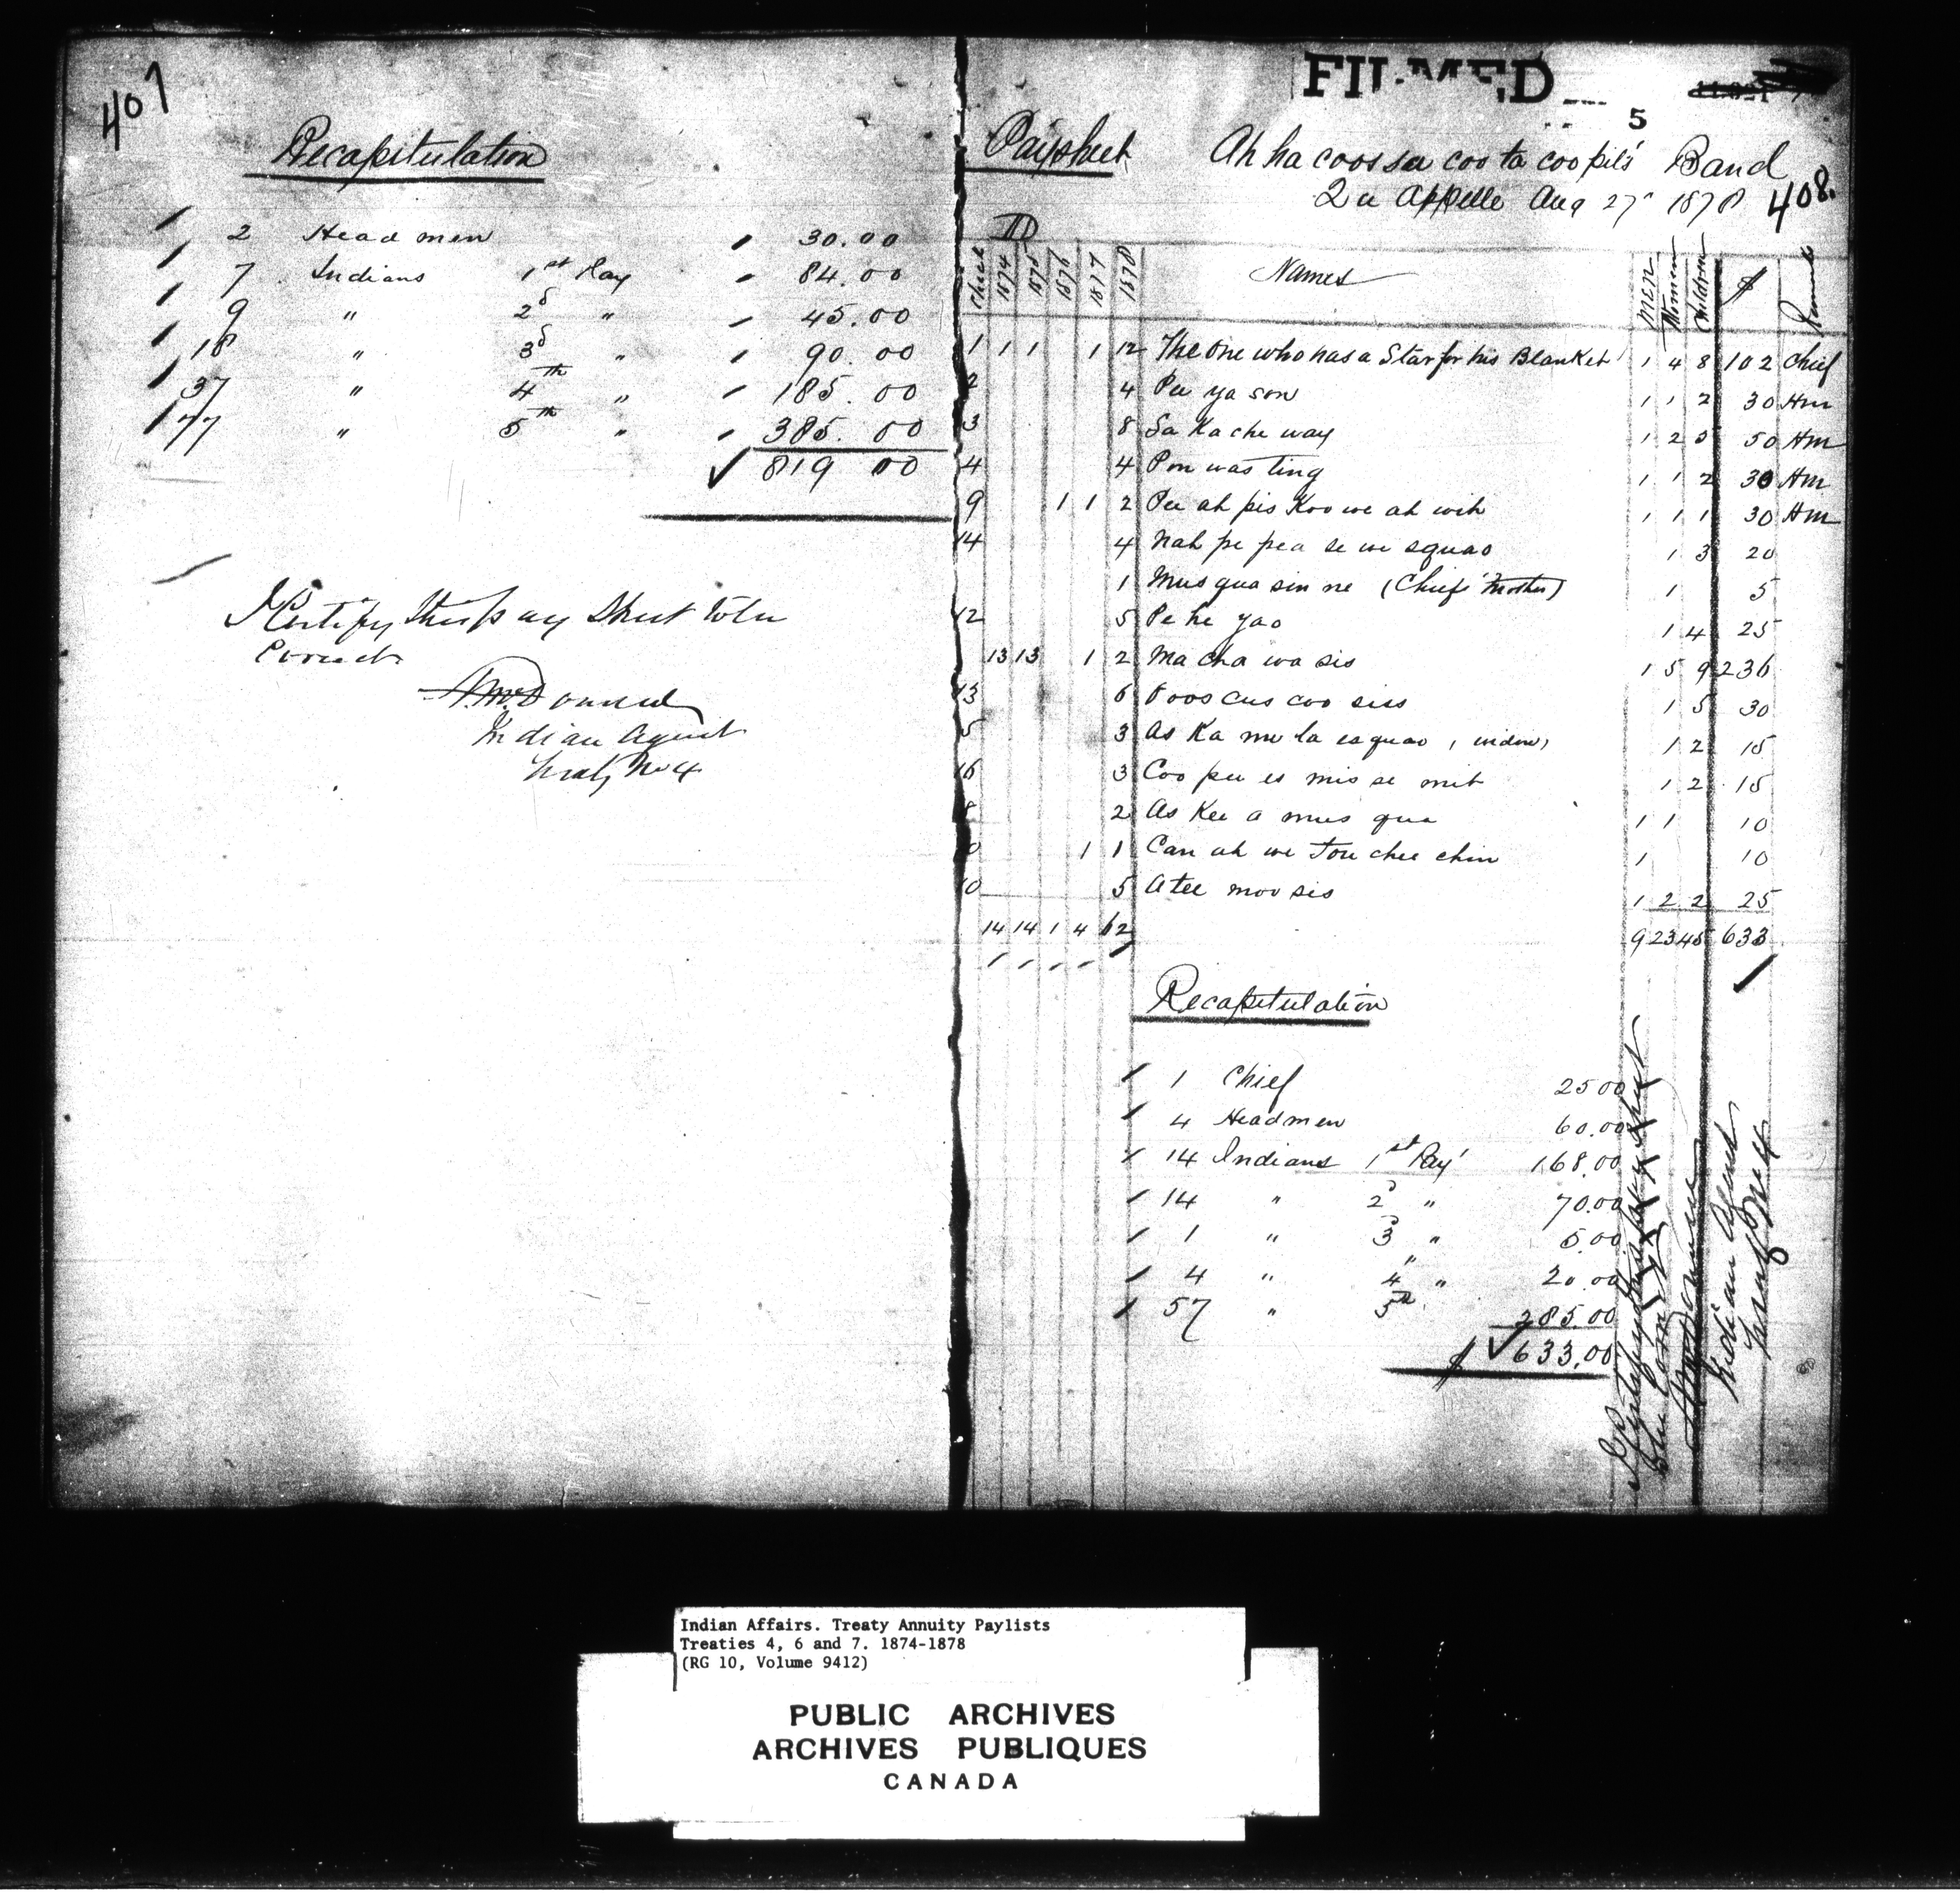 407
Recapitulation
2 Head men 30.00
7 Indians 1st Pay 84.00
9 " 2d " 45.00
18 " 3d " 90.00
37 " 4th " 185.00
77 " 5th " 385.00
819 00
I Certify this pay Sheet to be
Correct
Indian Agent
Treaty No 4
FILMED
5
Paysheet Ah ha coos sa coo ta coo pits' Band
Qu Appelle Aug 27" 1878 408.
Check 1874 1875 1876 1877 1878 Names Men Women Children $ Remarks
1 1 1 1 12 The One who has a Star for his Blanket 1 4 8 102 Chief
2 4 Pee ya son 1 1 2 30 Hm
3 8 Sa Ka che way 1 2 5 50 Hm
4 4 Pon was ting 1 1 2 30 Hm
9 1 1 2 Pee ah pis Koo we ah wih 1 1 1 30 Hm
14 4 Nah pe pea se we squao 1 3 20
1 Mus qua sin ne (Chiefs Mother) 1 5
12 5 Pe he yao 1 4 25
13 13 1 2 Ma cha wa sis 1 5 9 236
13 6 Poos cus coo siss 1 5 30
5 3 As Ka me ta esquao (widow) 1 2 15
16 3 Coo pee es mis se mit 1 2 15
8 2 As Kee a mus qua 1 1 10
0 1 1 Can ah we Tou chee chin 1 10
10 5 A tee moo sis 1 2 2 25
14 14 1 4 62 9 23 45 633
Recapitulation
1 Chief 25 00
4 Headmen 60.00
14 Indians 1st Pay 168.00
14 " 2d " 70.00
1 " 3d " 5.00
4 " 4" " 20.00
57 " 5th 285.00
$ 633.00
I Certify this pay Sheet
to be Correct
Indian Agent
Treaty No 4
Indian Affairs. Treaty Annuity Paylists
Treaties 4, 6 and 7. 1874-1878
(RG 10, Volume 9412)
PUBLIC ARCHIVES
ARCHIVES PUBLIQUES
CANADA